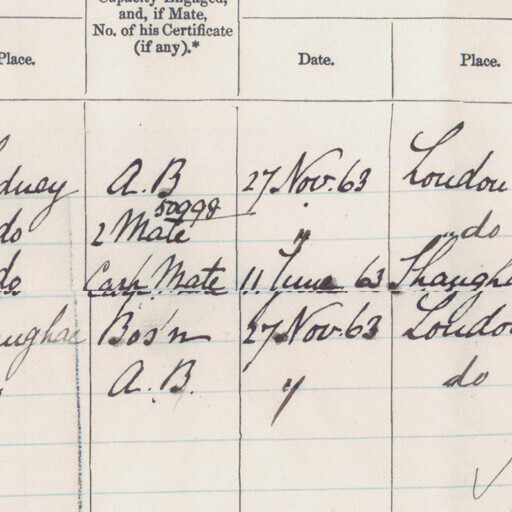 Capacity Engaged,
and, if Mate,
No. of his Certificate
(if any).*
Place. Date. Place.
dney A.B 27 Nov. 63 London
50998
do 2 Mate " " do
do Carp. Mate 11 June 63 Shangha
anghae Bos'n 27 Nov. 63 London
A.B. " do